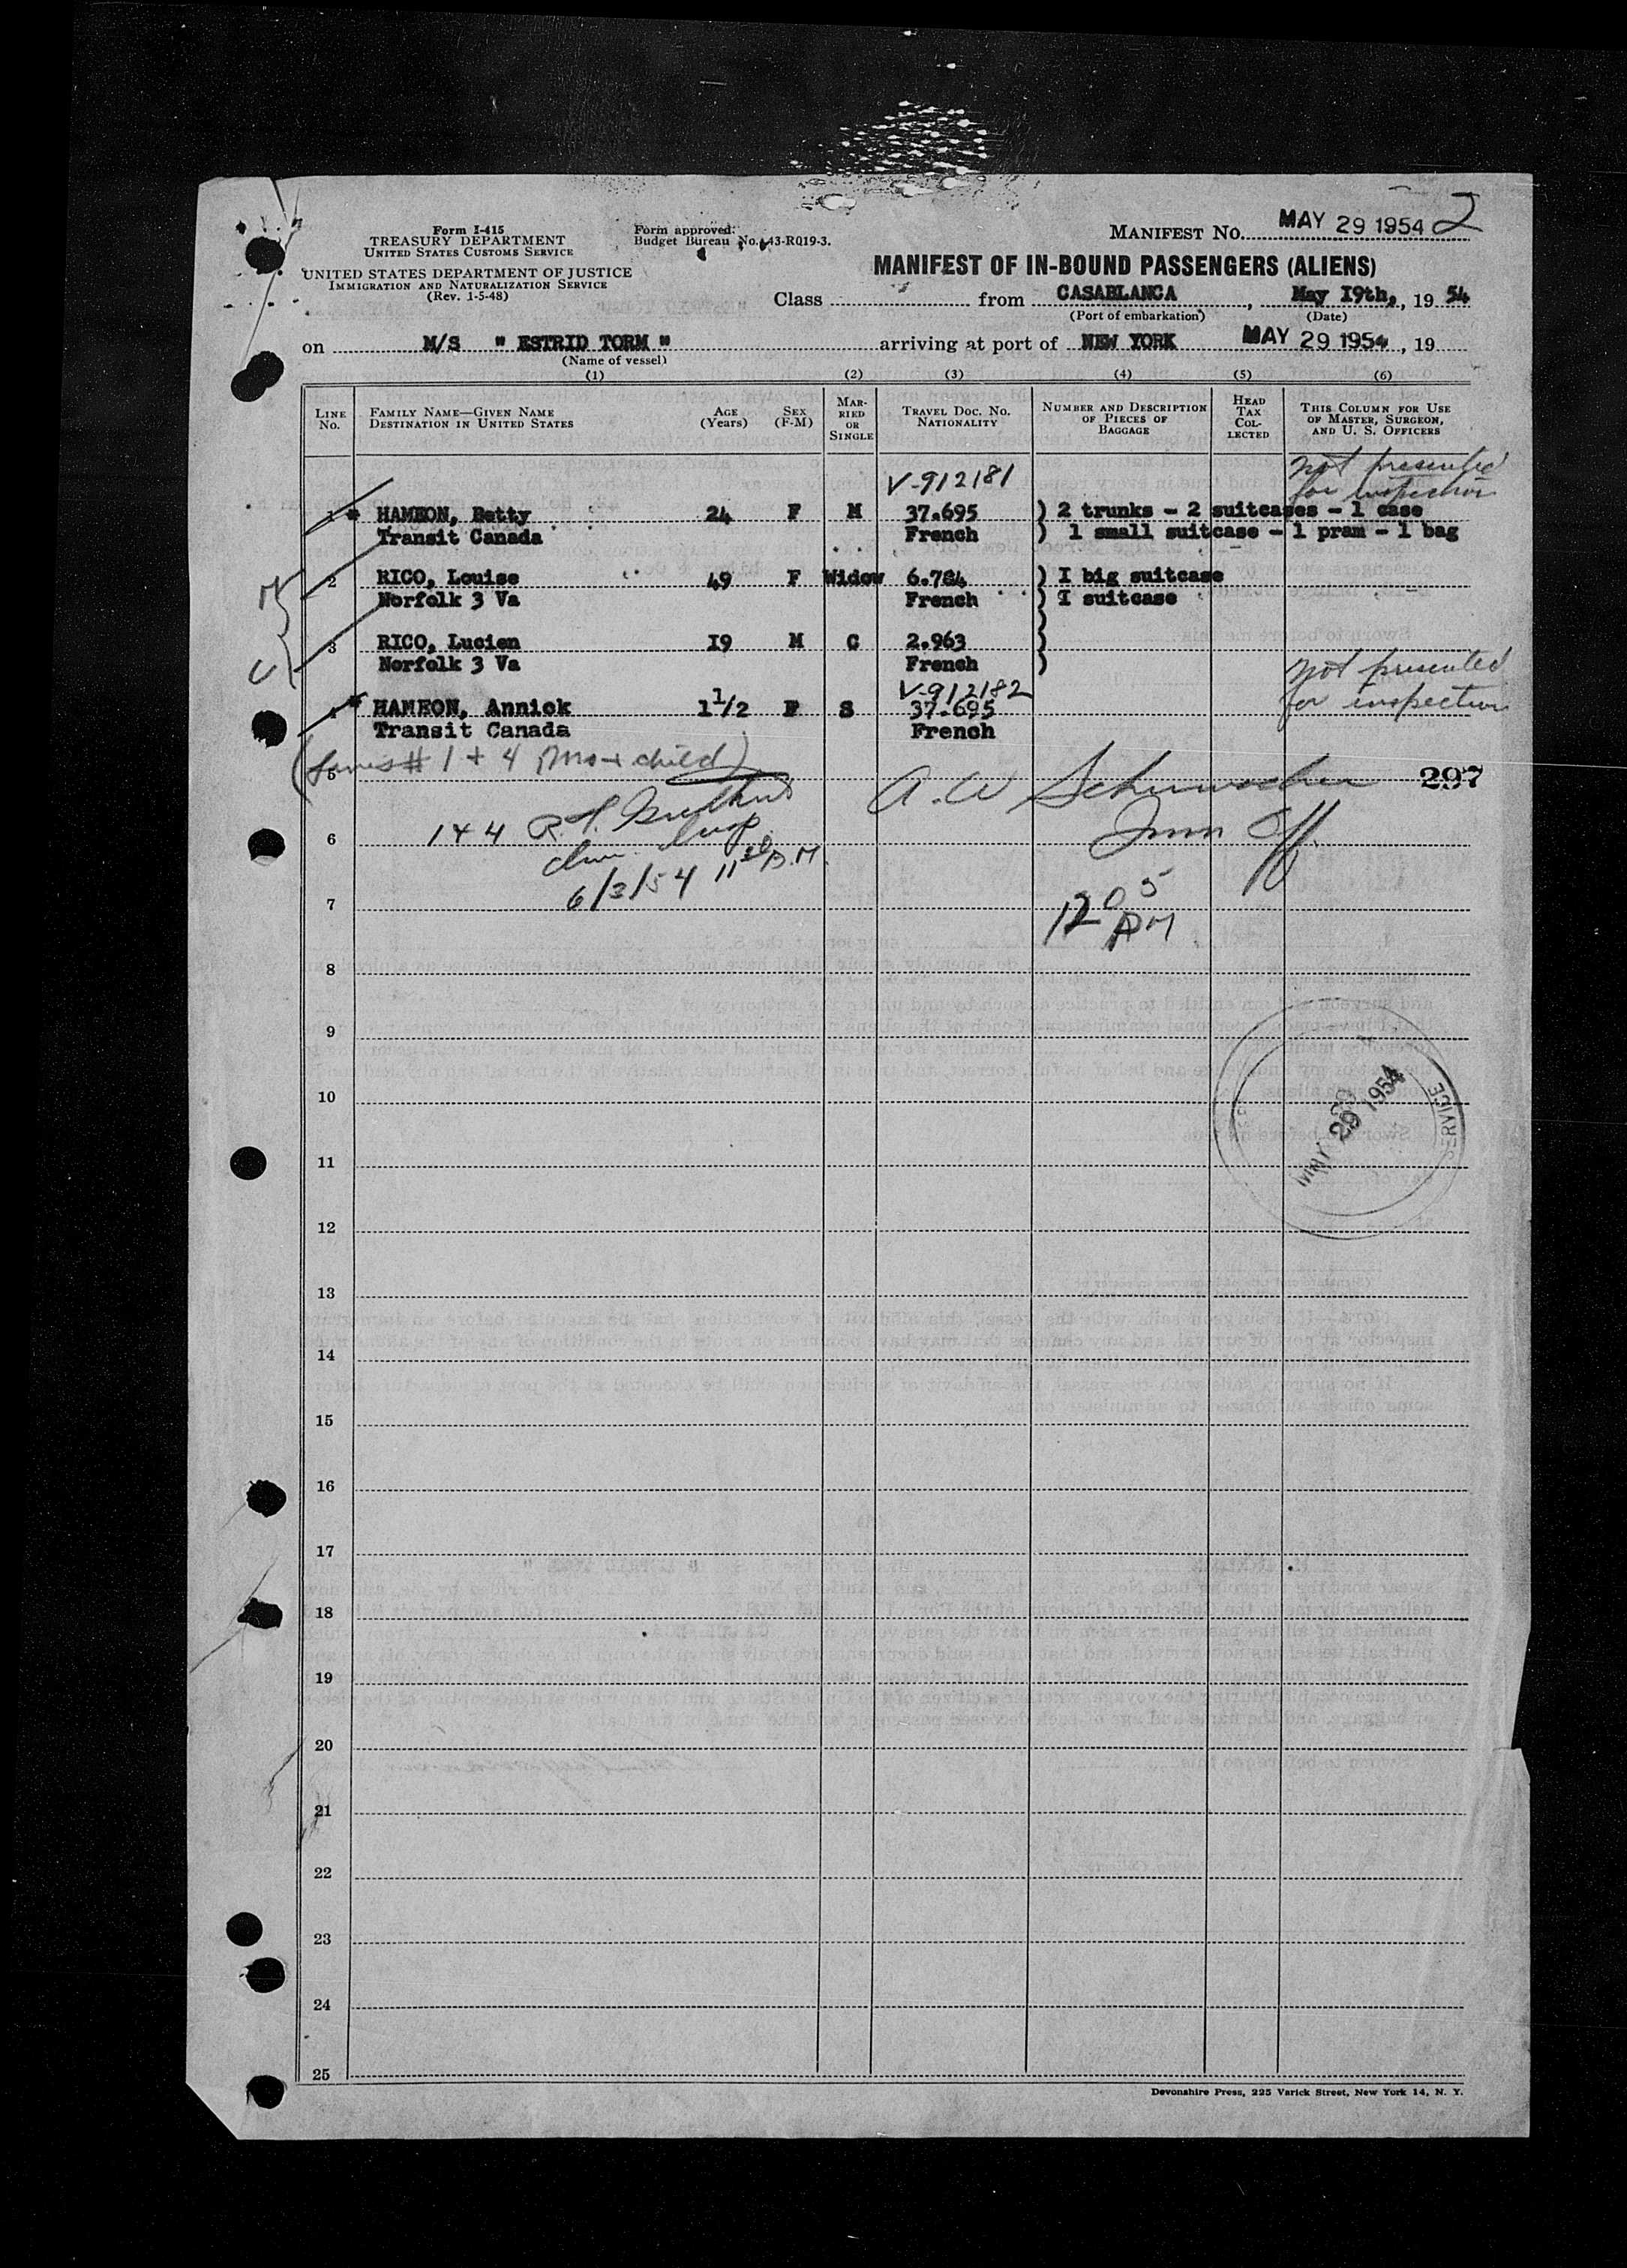 Form I-415
TREASURY DEPARTMENT
UNITED STATES CUSTOMS SERVICE
UNITED STATES DEPARTMENT OF JUSTICE
IMMIGRATION AND NATURALIZATION SERVICE
(Rev. 1-5-48)
Form approved:
Budget Bureau No. 43-R019-3.
MANIFEST NO. MAY 29 1954 2
MANIFEST OF IN-BOUND PASSENGERS (ALIENS)
Class from CASABLANCA, May I9th, 19 54
(Port of embarkation) (Date)
on M/S " ESTRID TORM " arriving at port of NEW YORK MAY 29 1954, 19
(Name of vessel)
(1) (2) (3) (4) (5) (6)
LINE No. FAMILY NAME—GIVEN NAME DESTINATION IN UNITED STATES AGE (Years) SEX (F-M) MARRIED OR SINGLE TRAVEL DOC. NO. NATIONALITY NUMBER AND DESCRIPTION OF PIECES OF BAGGAGE HEAD TAX COLLECTED THIS COLUMN FOR USE OF MASTER, SURGEON, AND U. S. OFFICERS
V-912181 not presented for inspection
1 * HAMEON, Betty 24 F M 37.695 ) 2 trunks - 2 suitcases - 1 case
Transit Canada French ) 1 small suitcase - 1 pram - 1 bag
2 RICO, Louise 49 F Widow 6.784 ) I big suitcase
Norfolk 3 Va French ) I suitcase
3 RICO, Lucien I9 M C 2.963 )
Norfolk 3 Va French )
V-912182 not presented for inspection
4 * HAMEON, Annick 1 1/2 F S 37.695
Transit Canada French
(Lines # 1 + 4 Mo + child)
5 A. W. Schumacher 297
6 1 + 4 R. Insp. Imm Off.
6/3/54 11 30 A.M.
7 12 05 PM
8
9
10
SERVICE
MAY 29 1954
11
12
13
14
15
16
17
18
19
20
21
22
23
24
25
Devonshire Press, 225 Varick Street, New York 14, N. Y.